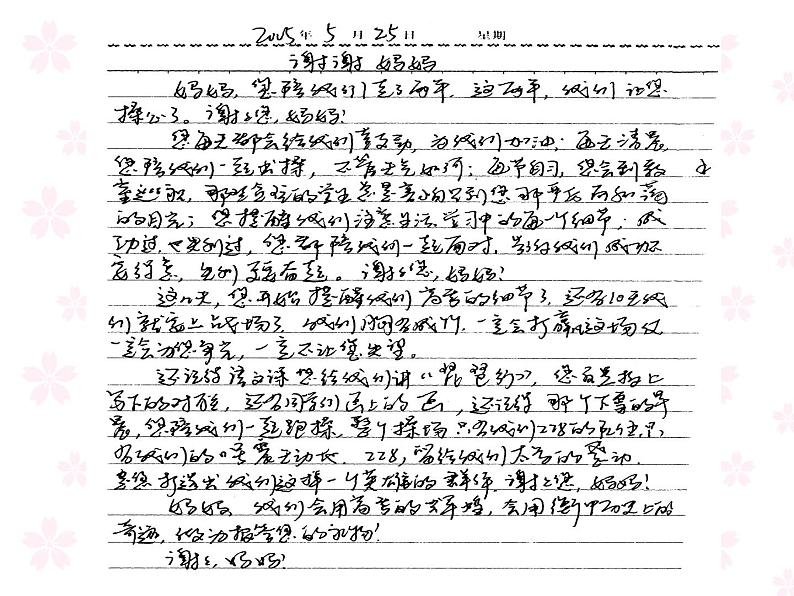 2005年5月25日 星期
谢谢妈妈
妈妈,您陪我们走了两年,这两年,我们让您
操心了。谢谢您,妈妈!
您每天都会给我们鼓励,为我们加油;每天清晨
您陪我们一起出操,不管天气如何;每节自习,您会到教
室巡视,那些贪玩的学生总是害怕见到您那严厉而和蔼
的目光;您提醒我们注意生活学习中的每一个细节;成
功过,也失利过,您都陪我们一起面对,告诉我们成功不
宜得意,失利了要奋起。谢谢您,妈妈!
这几天,您开始提醒我们高考的细节了,还有10天我
们就上战场了,我们胸有成竹,一定会打赢这场仗
一定会为您争光,一定不让您失望。
还记得语文课您给我们讲《琵琶行》,您在黑板上
写下的对联,还有同学们画上的画,还记得那个下雪的早
晨,您陪我们一起跑操,整个操场只有我们228的学生,只
有我们的口号震天动地。228,留给我们太多的感动
是您打造出我们这样一个英雄的群体,谢谢您,妈妈!
妈妈,我们会用高考的辉煌,会用衡中历史上的
奇迹,做为报答您的礼物!
谢谢,妈妈!